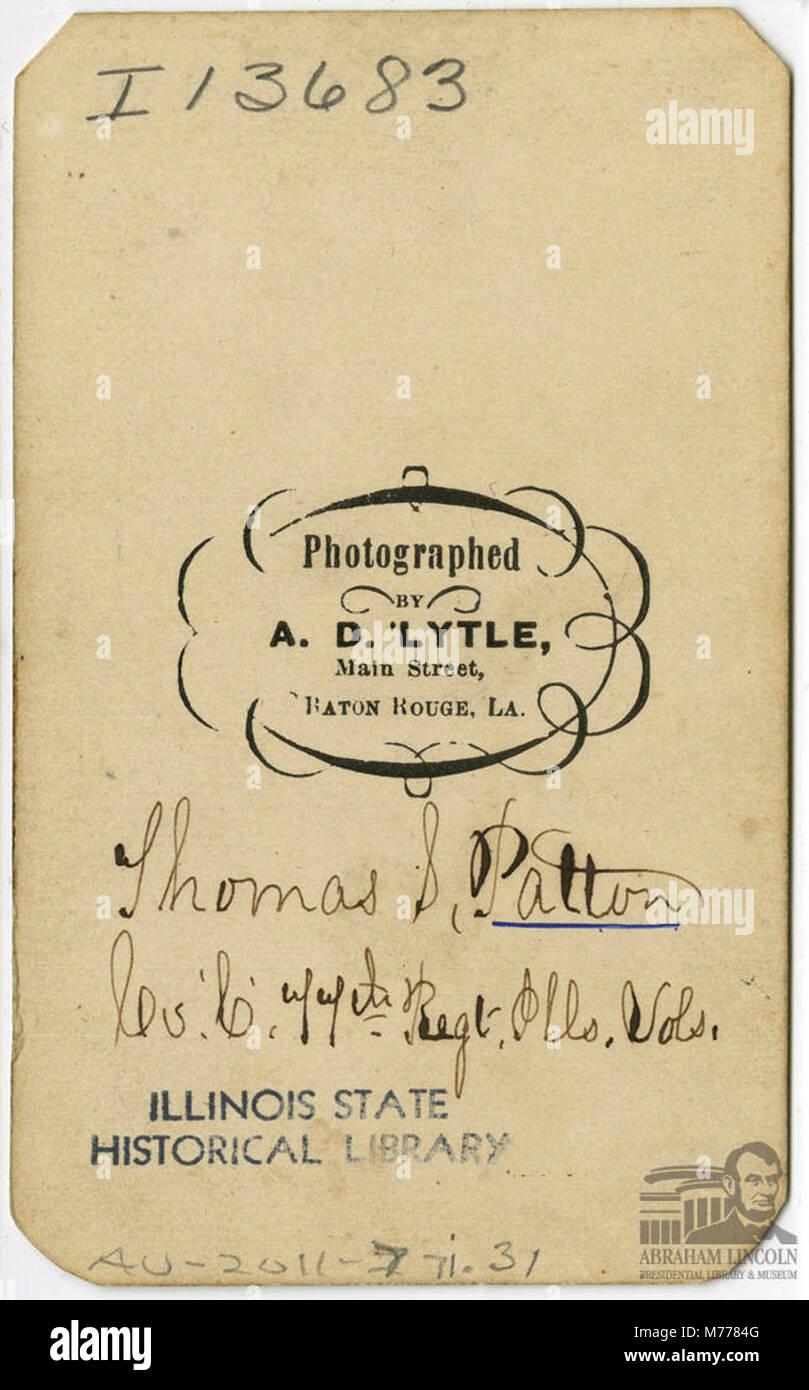 I13683
Photographed
BY
A. D. LYTLE,
Main Street,
BATON ROUGE, LA.
Thomas S, Patton
Co. C. 77th Regt, Ills. Vols.
ILLINOIS STATE
HISTORICAL LIBRARY
ABRAHAM LINCOLN
PRESIDENTIAL LIBRARY & MUSEUM
alamy
a
alamy
Image ID: M7784G
www.alamy.com